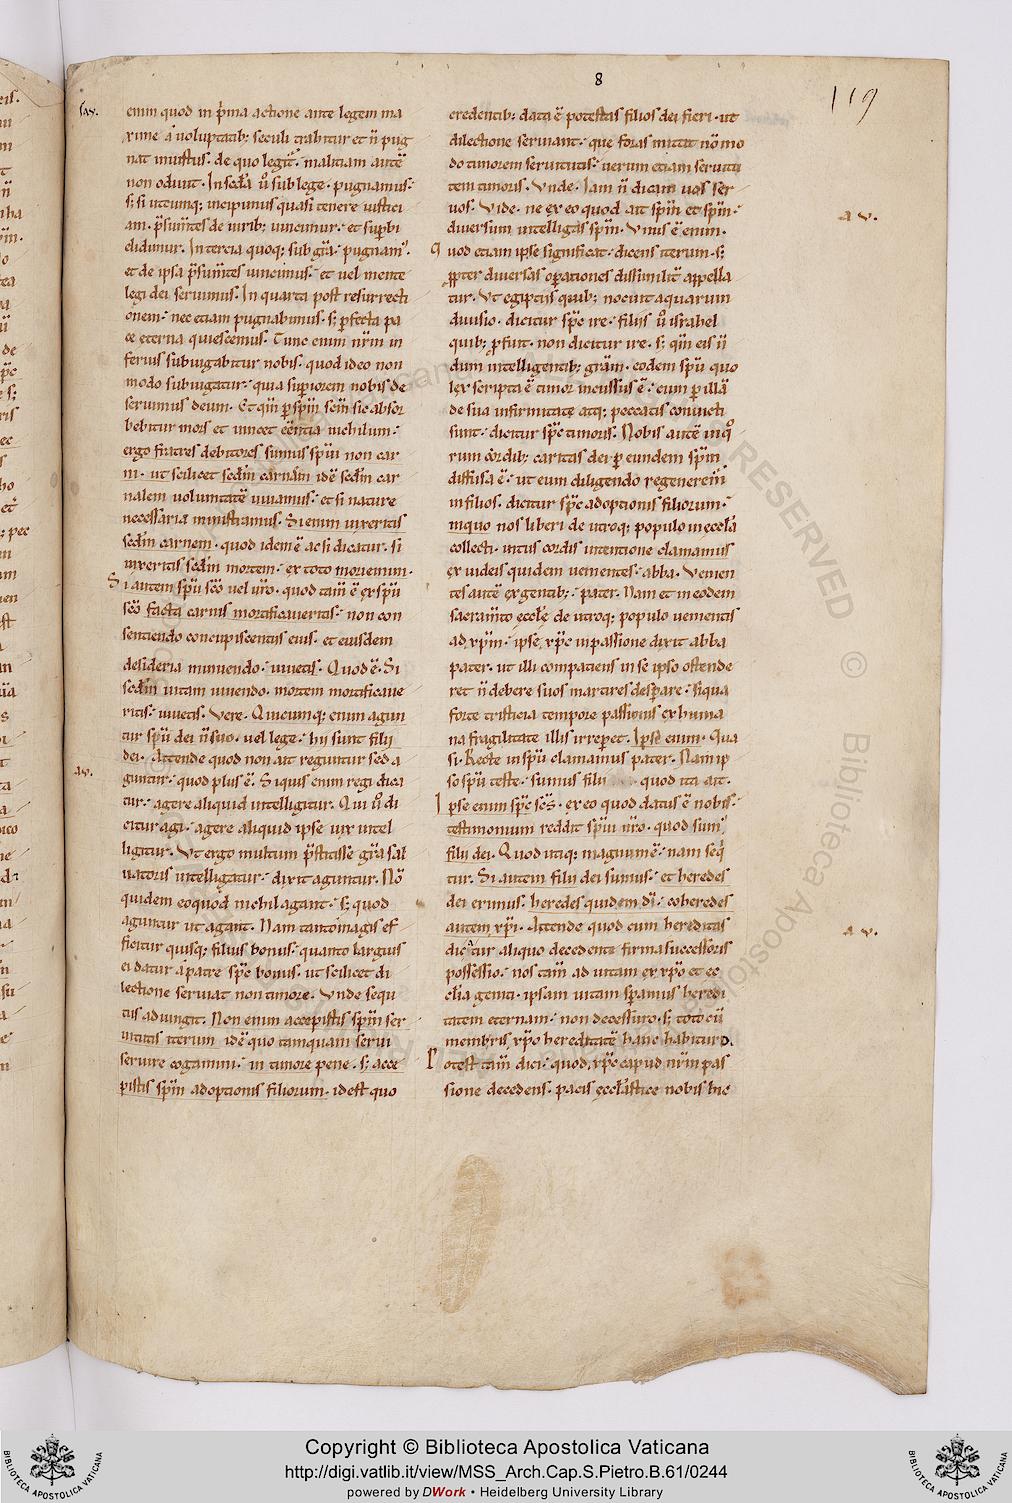 8
119
enim quod in p̄ma actione ante legem ma
xime a voluptatib; seculi trahitur et ñ pug
nat iniustus. de quo legit̃. malitiam autē
non odiuit. In sedā ũ sub lege. pugnamus.
s; si utcumq; incipimus quasi tenere iustici
am. p̄sumtes de uirib; uincimur. et supbi
elidimur. In tercia quoq; sub grã. pugnam̃.
et de ipsa p̄sumtes uincimus. et uel mente
legi dei seruimus. In quarta post resurrecti
onem. nec etiam pugnabimus. s; pfecta pa
ce eterna quiescemus. Tunc enim nr̃m in
ferius subiugabitur nobis. quod ideo non
modo subiugatur. quia supiorem nobis de
seruimus deum. Et qm̃ p spm̃ scm̃ sic absor
bebitur mors et in nichilum.
ergo fratres debitores sumus spũi non car
ni. ut scilicet sedm̃ carnē sedm̃ car
nalem uoluntatē uiuamus. et si nature
necessaria ministramus. Si enim uixeritis
sedm̃ carnem. quod idem ē ac si dicatur. si
uixeritis sedm̃ mortem. ex toto moriemini.
Si autem spũ scõ uel nr̃o. quod tam̃ ē ex spũ
scõ facta carnis mortificaueritis. non con
sentiendo concupiscentiis eius. et eiusdem
desideria minuendo. uiuetis. Quod ē. Si
sedm̃ uitam uiuendo. mortem mortificaue
ritis. uiuetis. Vere. Quicumq; enim agun
tur spũ dei ñ suo. uel lege. hii sunt filii
dei. Attende quod non ait reguntur sed a
guntur. quod plus ē. Si quis enim regi dica
tur. agere aliquid intelligitur. Qui ũ di
citur agi. agere aliquid ipse uix intel
ligitur. Vt ergo multum p̄stitisse grã sal
uatoris intelligatur. dixit aguntur. Nõ
quidem eo quod nichil agant. s; quod
aguntur ut agant. Nam tanto magis ef
ficitur quisq; filius bonus. quanto largius
ei datur a patre spc̄ bonus. ut scilicet di
lectione seruiat non timore. Vnde sequ
tus adiungit. Non enim accepistis spm̃ ser
uitutis iterum idē quo tamquam serui
seruire cogamini. in timore pene. s; acce
pistis spm̃ adoptionis filiorum. idest quo
credentib; data ē potestas filios dei fieri. ut
dilectione seruiant. que foras mittit nõ mo
do timorem seruitutis. uerum etiam seruitu
tem timoris. Vnde. Iam ñ dicam uos ser
uos. Vide. ne ex eo quod ait spm̃ et spm̃.
diuersum intelligas spm̃. Vnus ē enim.
Quod etiam ipse significat. dicens iterum. s;
ppter diuersas operationes dissimilit̃ appella
tur. Vt egiptiis quib; nocuit aquarum
diuisio. dicitur spc̄ ire. filiis ũ israhel
quib; pfuit. non dicitur ire. s; qm̃ eis ñ
dum intelligentib; grãm. eodem spũ quo
lex scripta ē timor incussus ē. cum p illã
de sua infirmitate atq; peccatis conuicti
sunt. dicitur spc̄ timoris. Nobis autē in q̊
rum cordib; caritas dei p eundem spm̃
diffusa ē. ut eum diligendo regenerem̃
in filios. dicitur spc̄ adoptionis filiorum.
in quo nos liberi de utroq; populo in ecclã
collecti. unius cordis intentione clamamus
ex iudeis quidem uenientes. abba. Venien
tes autē ex gentib;. pater. Nam et in eodem
sacram̃to eccle de utroq; populo uenientis
ad xp̃m. ipse xp̃c in passione dixit abba
pater. ut illi compatiens in se ipso ostende
ret ñ debere suos martires despare. si qua
forte tristicia tempore passionis ex huma
na fragilitate illis irreperet. Ipse enim. Qua
si. Recte in spũ clamamus pater. Nam ip
so spũ teste. sumus filii quod ita ait.
Ipse enim spc̄ scs̄. ex eo quod datus ē nobis.
testimonium reddit spũi nr̃o. quod sum̃
filii dei. Quod utiq; magnum ē. nam seq̃
tur. Si autem filii dei sumus. et heredes
dei erimus. heredes quidem di. coheredes
autem xp̃i. Attende quod cum hereditas
dicatur aliquo decedente firma successoris
possessio. nos tam̃ ad uitam ex xp̃o et ec
clia geniti. ipsam uitam speramus heredi
tatem eternam. non decessuro. s; toto cũ
membris xp̃o hereditatē hanc habituro.
Potest tam̃ dici. quod xp̃c capud nr̃m pas
sione decedens. pacis ecclastice nobis hic
av.
av.
av.
Copyright © Biblioteca Apostolica Vaticana
http://digi.vatlib.it/view/MSS_Arch.Cap.S.Pietro.B.61/0244
powered by DWork • Heidelberg University Library
BIBLIOTECA APOSTOLICA VATICANA
BIBLIOTECA APOSTOLICA VATICANA